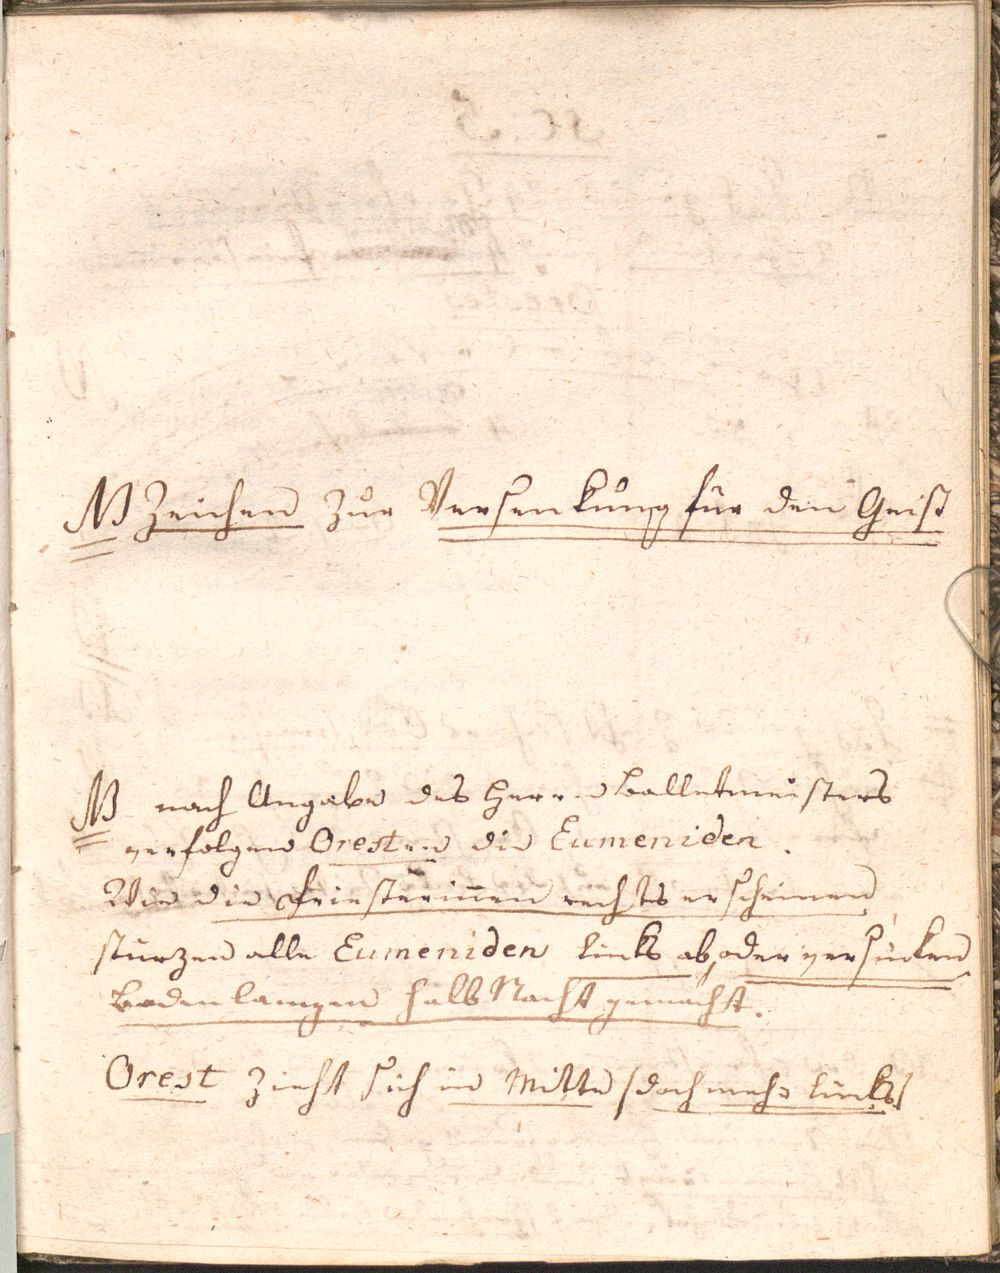 NB Zeichen zur Versenkung für den Geist
NB nach Angabe des Herrn Balletmeisters
verfolgen Oresten die Eumeniden.
Wie die Priesterinnen rechts erscheinen,
stürzen alle Eumeniden links ab, oder versinken,
Bodenlampen halb Nacht gemacht.
Orest zieht sich in Mitte /doch mehr links/